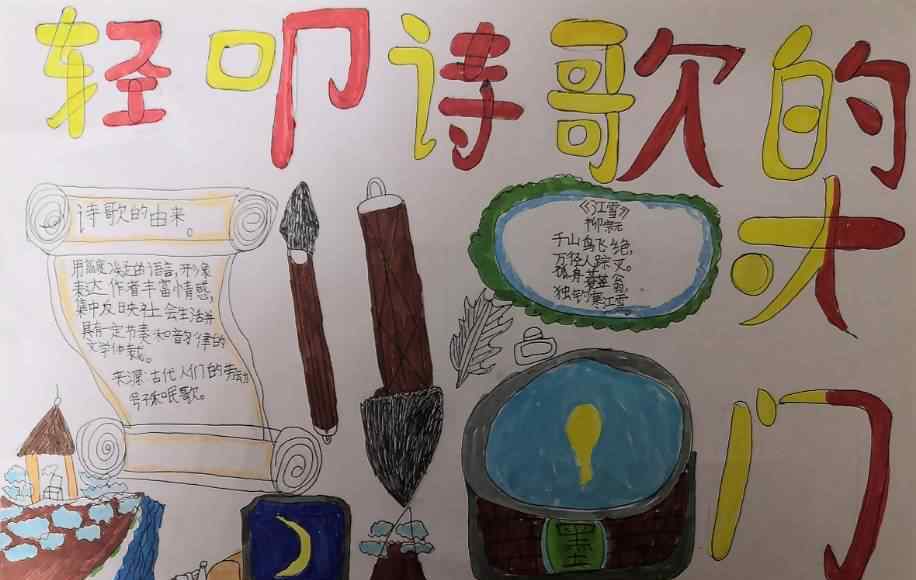 轻叩诗歌的
大
门
诗歌的由来。
用高度凝练的语言,形象
表达作者丰富情感,
集中反映社会生活并
具有一定节奏和韵律的
文学体裁。
来源:古代人们的劳动
号子和眠歌。
《江雪》
柳宗元
千山鸟飞绝,
万径人踪灭。
孤舟蓑笠翁,
独钓寒江雪。
墨